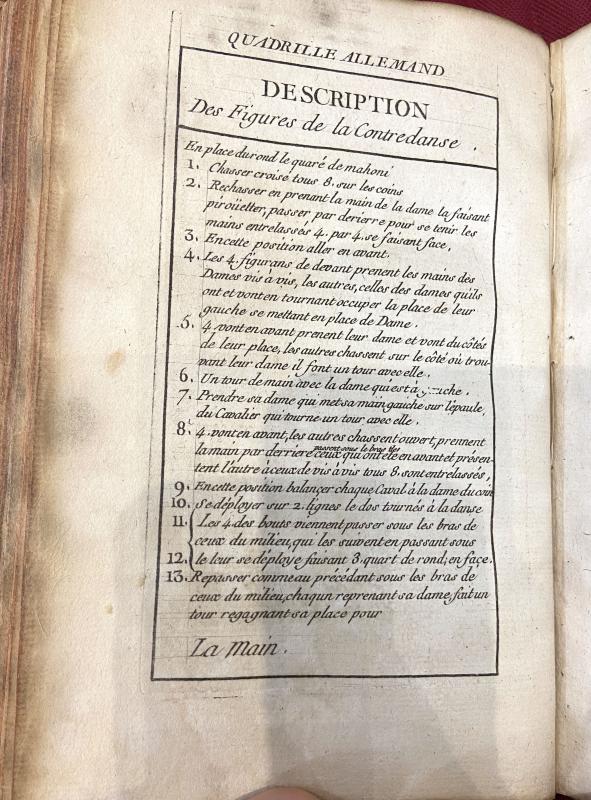 QUADRILLE ALLEMAND
DESCRIPTION
Des Figures de la Contredanse .
En place du rond le quaré de mahoni
1. Chasser croisé tous 8. sur les coins
2. Rechasser en prenant la main de la dame la faisant
piroüetter, passer par derierre pour se tenir les
mains entrelassés 4. par 4. se faisant face.
3. Encette position aller en avant.
4. Les 4. figurans de devant prenent les mains des
Dames vis à vis, les autres, celles des dames qu'ils
ont et vont en tournant occuper la place de leur
gauche se mettant en place de Dame .
5. 4. vont en avant prenent leur dame et vont du côtés
de leur place, les autres chassent sur le côté où trou-
vant leur dame il font un tour avec elle .
6. Un tour de main avec la dame qui est à
7. Prendre sa dame qui met sa main gauche sur l'épaule,
du Cavalier qui tourne un tour avec elle .
8. 4. vont en avant, les autres chassent ouvert, prennent
passent sous le bras
la main par derriere ceux qui ont été en avant et présen-
tent l'autre à ceux de vis à vis tous 8. sont entrelassés,
9. Encette position balançer chaque Caval. à la dame du coin
10. Se déployer sur 2. lignes le dos tournés à la danse
11. Les 4. des bouts viennent passer sous les bras de
ceux du milieu, qui les suivent en passant sous
12. le leur se déploye faisant 3. quart de rond, en face.
13. Repasser comme au précédant sous les bras de
ceux du milieu, chaqun reprenant sa dame, fait un
tour regagnant sa place pour
La Main .